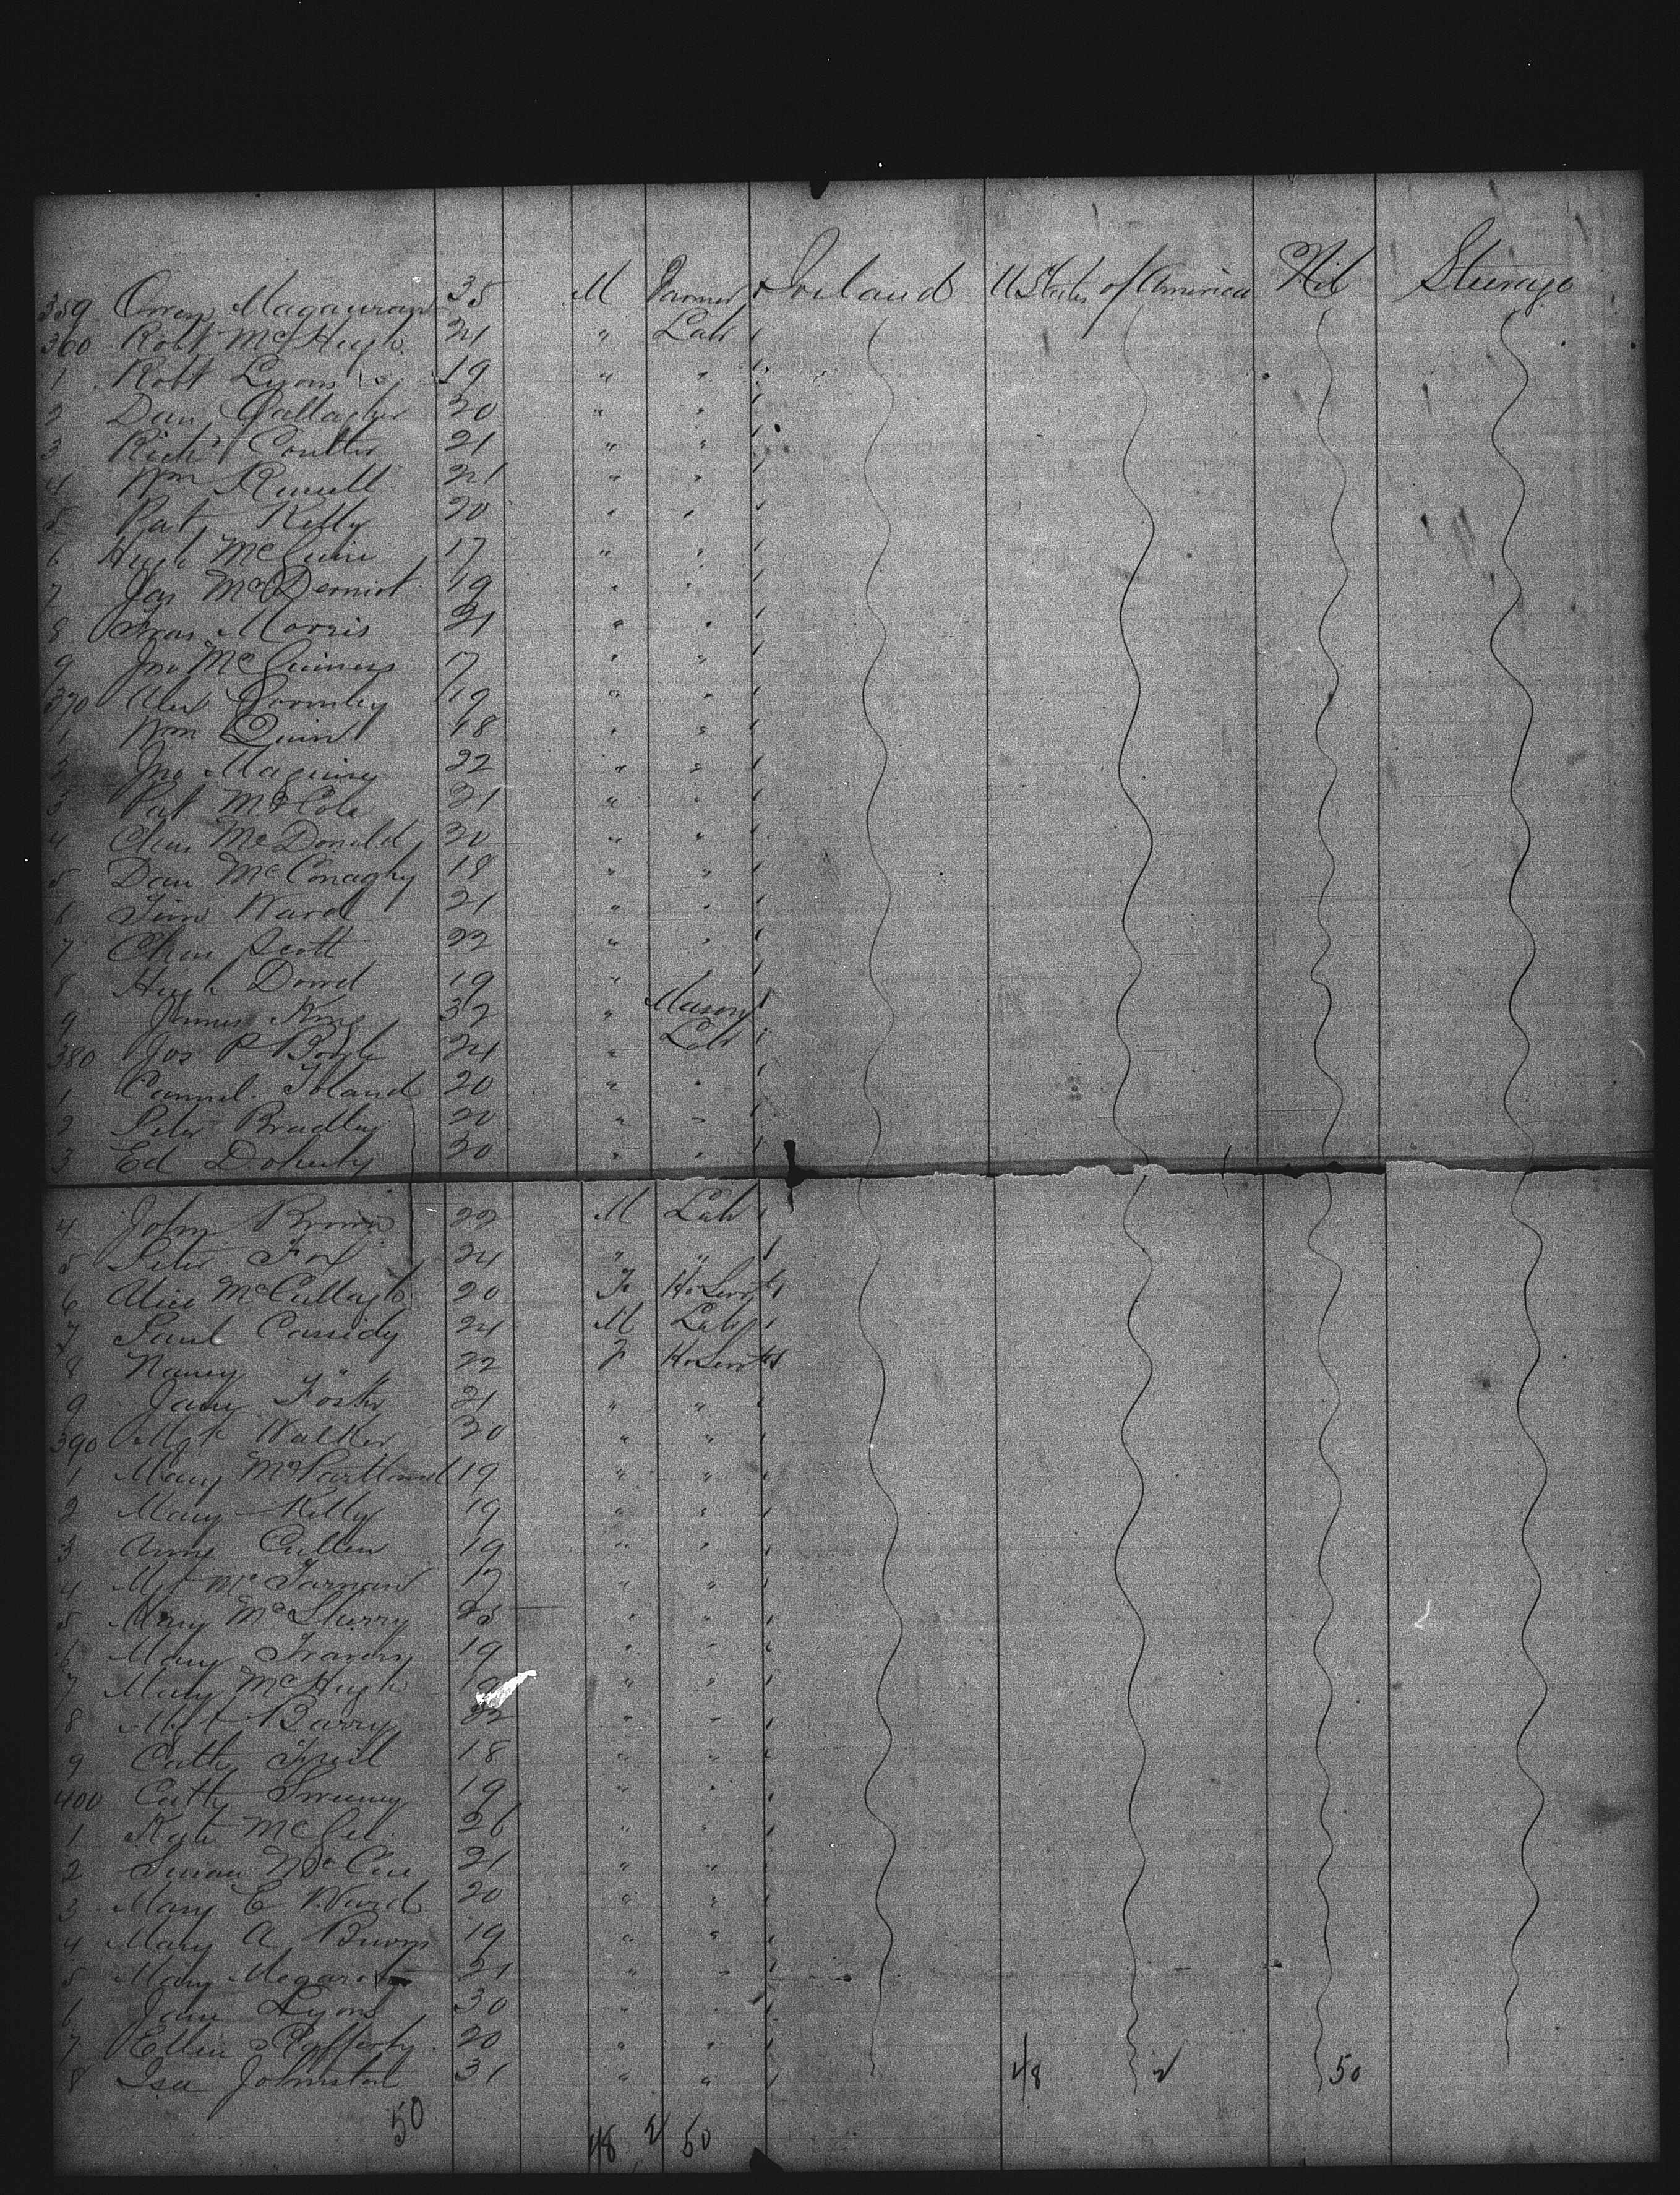 359 Owen Magauran 35 M Farmer Ireland U States of America Nil Steerage
360 Robt McHugh 21 " Lab
1 Robt Lyons 19 " "
2 Dan Gallagher 20 " "
3 Richd Coulter 21 " "
4 Wm Russell 21 " "
5 Pat Kelly 20 " "
6 Hugh McGuire 17 " "
7 Jas McDermot 19 " "
8 Fras Morris 21 " "
9 Jno McGuiness 17 " "
370 Alex Gormley 19 " "
1 Wm Quinn 18 " "
2 Jno Maguire 22 " "
3 Pat McCole 21 " "
4 Chas McDonald 20 " "
5 Dan McConaghy 18 " "
6 Tim Ward 21 " "
7 Chas Scott 22 " "
8 Hugh Dowd 19 "
9 James King 32 " Mason
380 Jos P Boyle 24 " Lab
1 Connel Toland 20 " "
2 Peter Bradley 20 " "
3 Ed Doherty 20 " "
4 John Brown 22 M Lab
5 Peter Fox 24 " "
6 Alice McCullagh 20 F Ho Servt
7 Paul Cassidy 24 M Lab
8 Nancy " 22 F Ho Servt
9 Jane Foster 21 " "
390 Mgt Walker 20 " "
1 Mary McPartland 19 " "
2 Mary Kelly 19 " "
3 Anne Cullen 19 " "
4 Mgt McTarnan 17 " "
5 Mary McSherry 25 " "
6 Mary Travers 19 " "
7 Mary McHugh 19 " "
8 Mgt Barry 22 " "
9 Cath Friel 18 " "
400 Cath Sweeney 19 " "
1 Kate McGee 26 " "
2 Susan McCue 21 " "
3 Mary E Ward 20 " "
4 Mary A Burns 19 " "
5 Mary 21 " "
6 Jane Lyons 30 " "
7 Ellen Rafferty 20 " "
8 Isa Johnston 31 " " 48 2 50
50 48 2 50